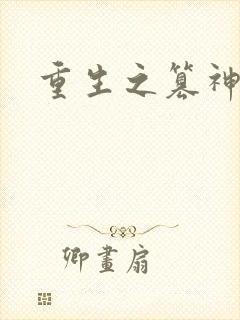 重生之篡神
卿畫扇